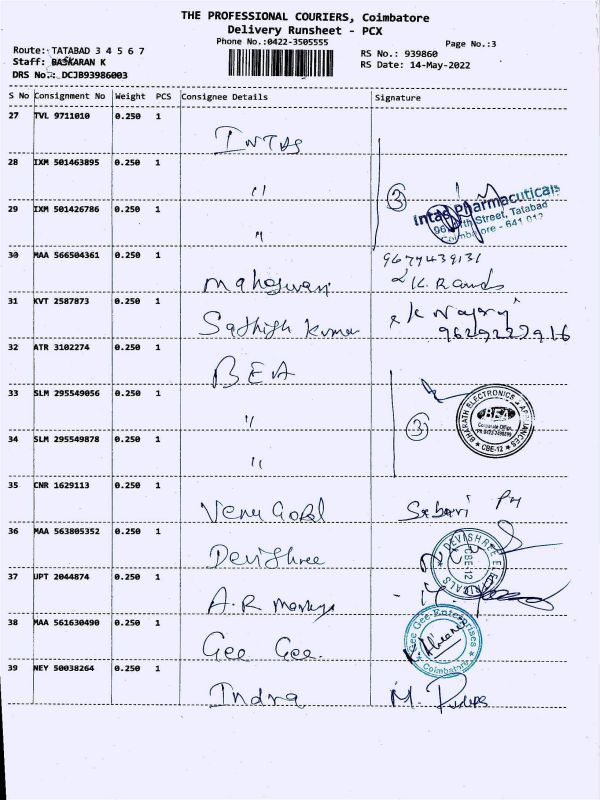 THE PROFESSIONAL COURIERS, Coimbatore
Delivery Runsheet - PCX
Phone No.:0422-3505555
Page No.:3
Route: TATABAD 3 4 5 6 7
RS No.: 939860
Staff: BASKARAN K
RS Date: 14-May-2022
DRS No.: DCJB93986003
S No Consignment No Weight PCS Consignee Details Signature
27 TVL 9711010 0.250 1
INTAS
28 IXM 501463895 0.250 1
〃
3
Intas Pharmaceuticals
29 IXM 501426786 0.250 1
Street, Tatabad
Coimbatore - 641 012
〃
30 MAA 566504361 0.250 1
9679439131
Maheswari
31 KVT 2587873 0.250 1
Sathish Kumar
9629227916
32 ATR 3102274 0.250 1
BEA
33 SLM 295549056 0.250 1
〃
3
BHARATH ELECTRONICS & APPLIANCES
BEA
Corporate Office,
CBE-12
34 SLM 295549878 0.250 1
〃
35 CNR 1629113 0.250 1
Venu Gopal
Sabari
36 MAA 563805352 0.250 1
Devishree
DEVISHREE
CBE-12
37 UPT 2044874 0.250 1
A.R
38 MAA 561630490 0.250 1
Gee Gee
Gee Gee Enterprises
Coimbatore
39 NEY 50038264 0.250 1
Indra
M.